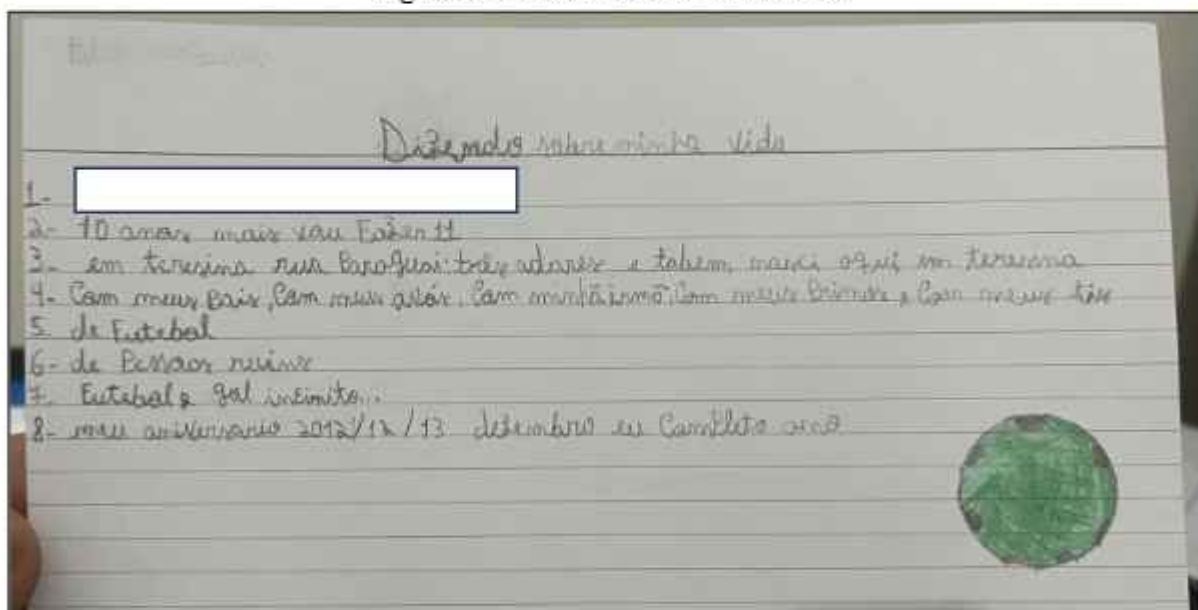 Dizendo sobre minha vida
1-
2- 10 anos mais vou Fazer 11
3- em teresina rua Paraguai: três adares e tabem nasci aqui em teresina
4- Com meus Pais, Com meus avós, Com minha irmã, Com meus Primos e Com meus tios
5- de Futebol
6- de Pessoas
7- Futebol e gol infinito..
8- meu aniversario 2012/12/13 dezembro eu Completo ano